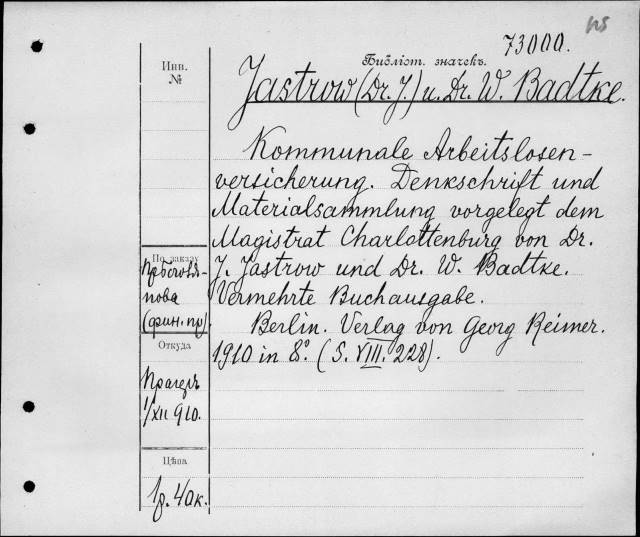 73000.
Библіот. значекъ.
Инв.
№
Jastrow (Dr. J.) u. Dr. W. Badtke.
Kommunale Arbeitslosen-
versicherung. Denkschrift und
Materialsammlung vorgelegt dem
Magistrat Charlottenburg von Dr.
J. Jastrow und Dr. W. Badtke.
Vermehrte Buchausgabe.
Berlin. Verlag von Georg Reimer.
1910 in 8°. (S. VIII. 228).
По заказу
(фин. пр).
Откуда
Прагеръ
1/XII 910.
Цѣна
1р. 40к.